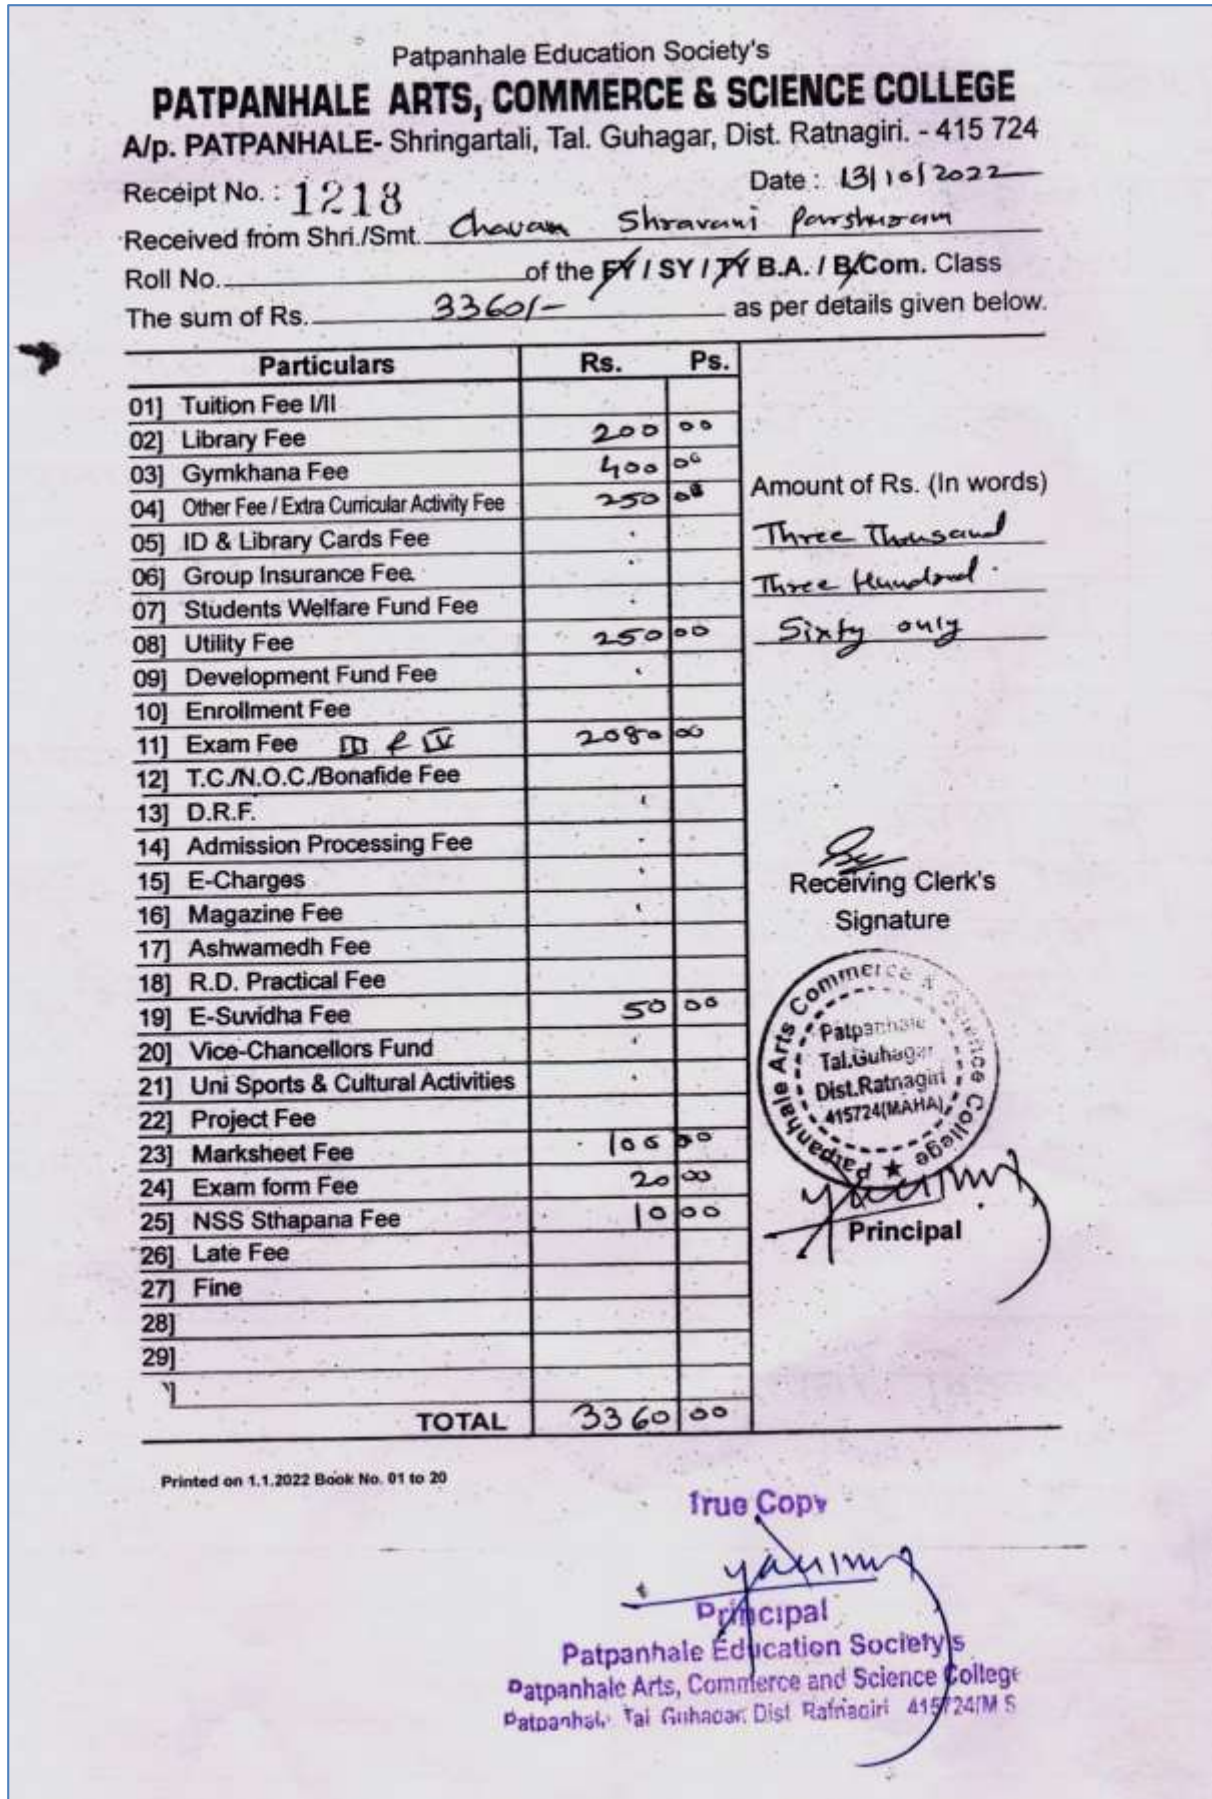 Patpanhale Education Society's
PATPANHALE ARTS, COMMERCE & SCIENCE COLLEGE
A/p. PATPANHALE- Shringartali, Tal. Guhagar, Dist. Ratnagiri. - 415 724
Receipt No. : 1218 Date : 13/10/2022
Received from Shri./Smt. Chavan Shravani Parshuram
Roll No. of the FY / SY / TY B.A. / B.Com. Class
The sum of Rs. 3360/- as per details given below.
Particulars Rs. Ps.
01] Tuition Fee I/II
02] Library Fee 200 00
03] Gymkhana Fee 400 00
04] Other Fee / Extra Curricular Activity Fee 250 00
05] ID & Library Cards Fee
06] Group Insurance Fee
07] Students Welfare Fund Fee
08] Utility Fee 250 00
09] Development Fund Fee
10] Enrollment Fee
11] Exam Fee III & IV 2080 00
12] T.C./N.O.C./Bonafide Fee
13] D.R.F.
14] Admission Processing Fee
15] E-Charges
16] Magazine Fee
17] Ashwamedh Fee
18] R.D. Practical Fee
19] E-Suvidha Fee 50 00
20] Vice-Chancellors Fund
21] Uni Sports & Cultural Activities
22] Project Fee
23] Marksheet Fee 100 00
24] Exam form Fee 20 00
25] NSS Sthapana Fee 10 00
26] Late Fee
27] Fine
28]
29]
TOTAL 3360 00
Amount of Rs. (In words)
Three Thousand
Three Hundred
Sixty only
Receiving Clerk's
Signature
Patpanhale Arts Commerce & Science College
Patpanhale
Tal.Guhagar
Dist.Ratnagiri
415724(MAHA)
Principal
Printed on 1.1.2022 Book No. 01 to 20
True Copy
Principal
Patpanhale Education Society's
Patpanhale Arts, Commerce and Science College
Patpanhale Tal Guhagar, Dist Ratnagiri 415724(M S